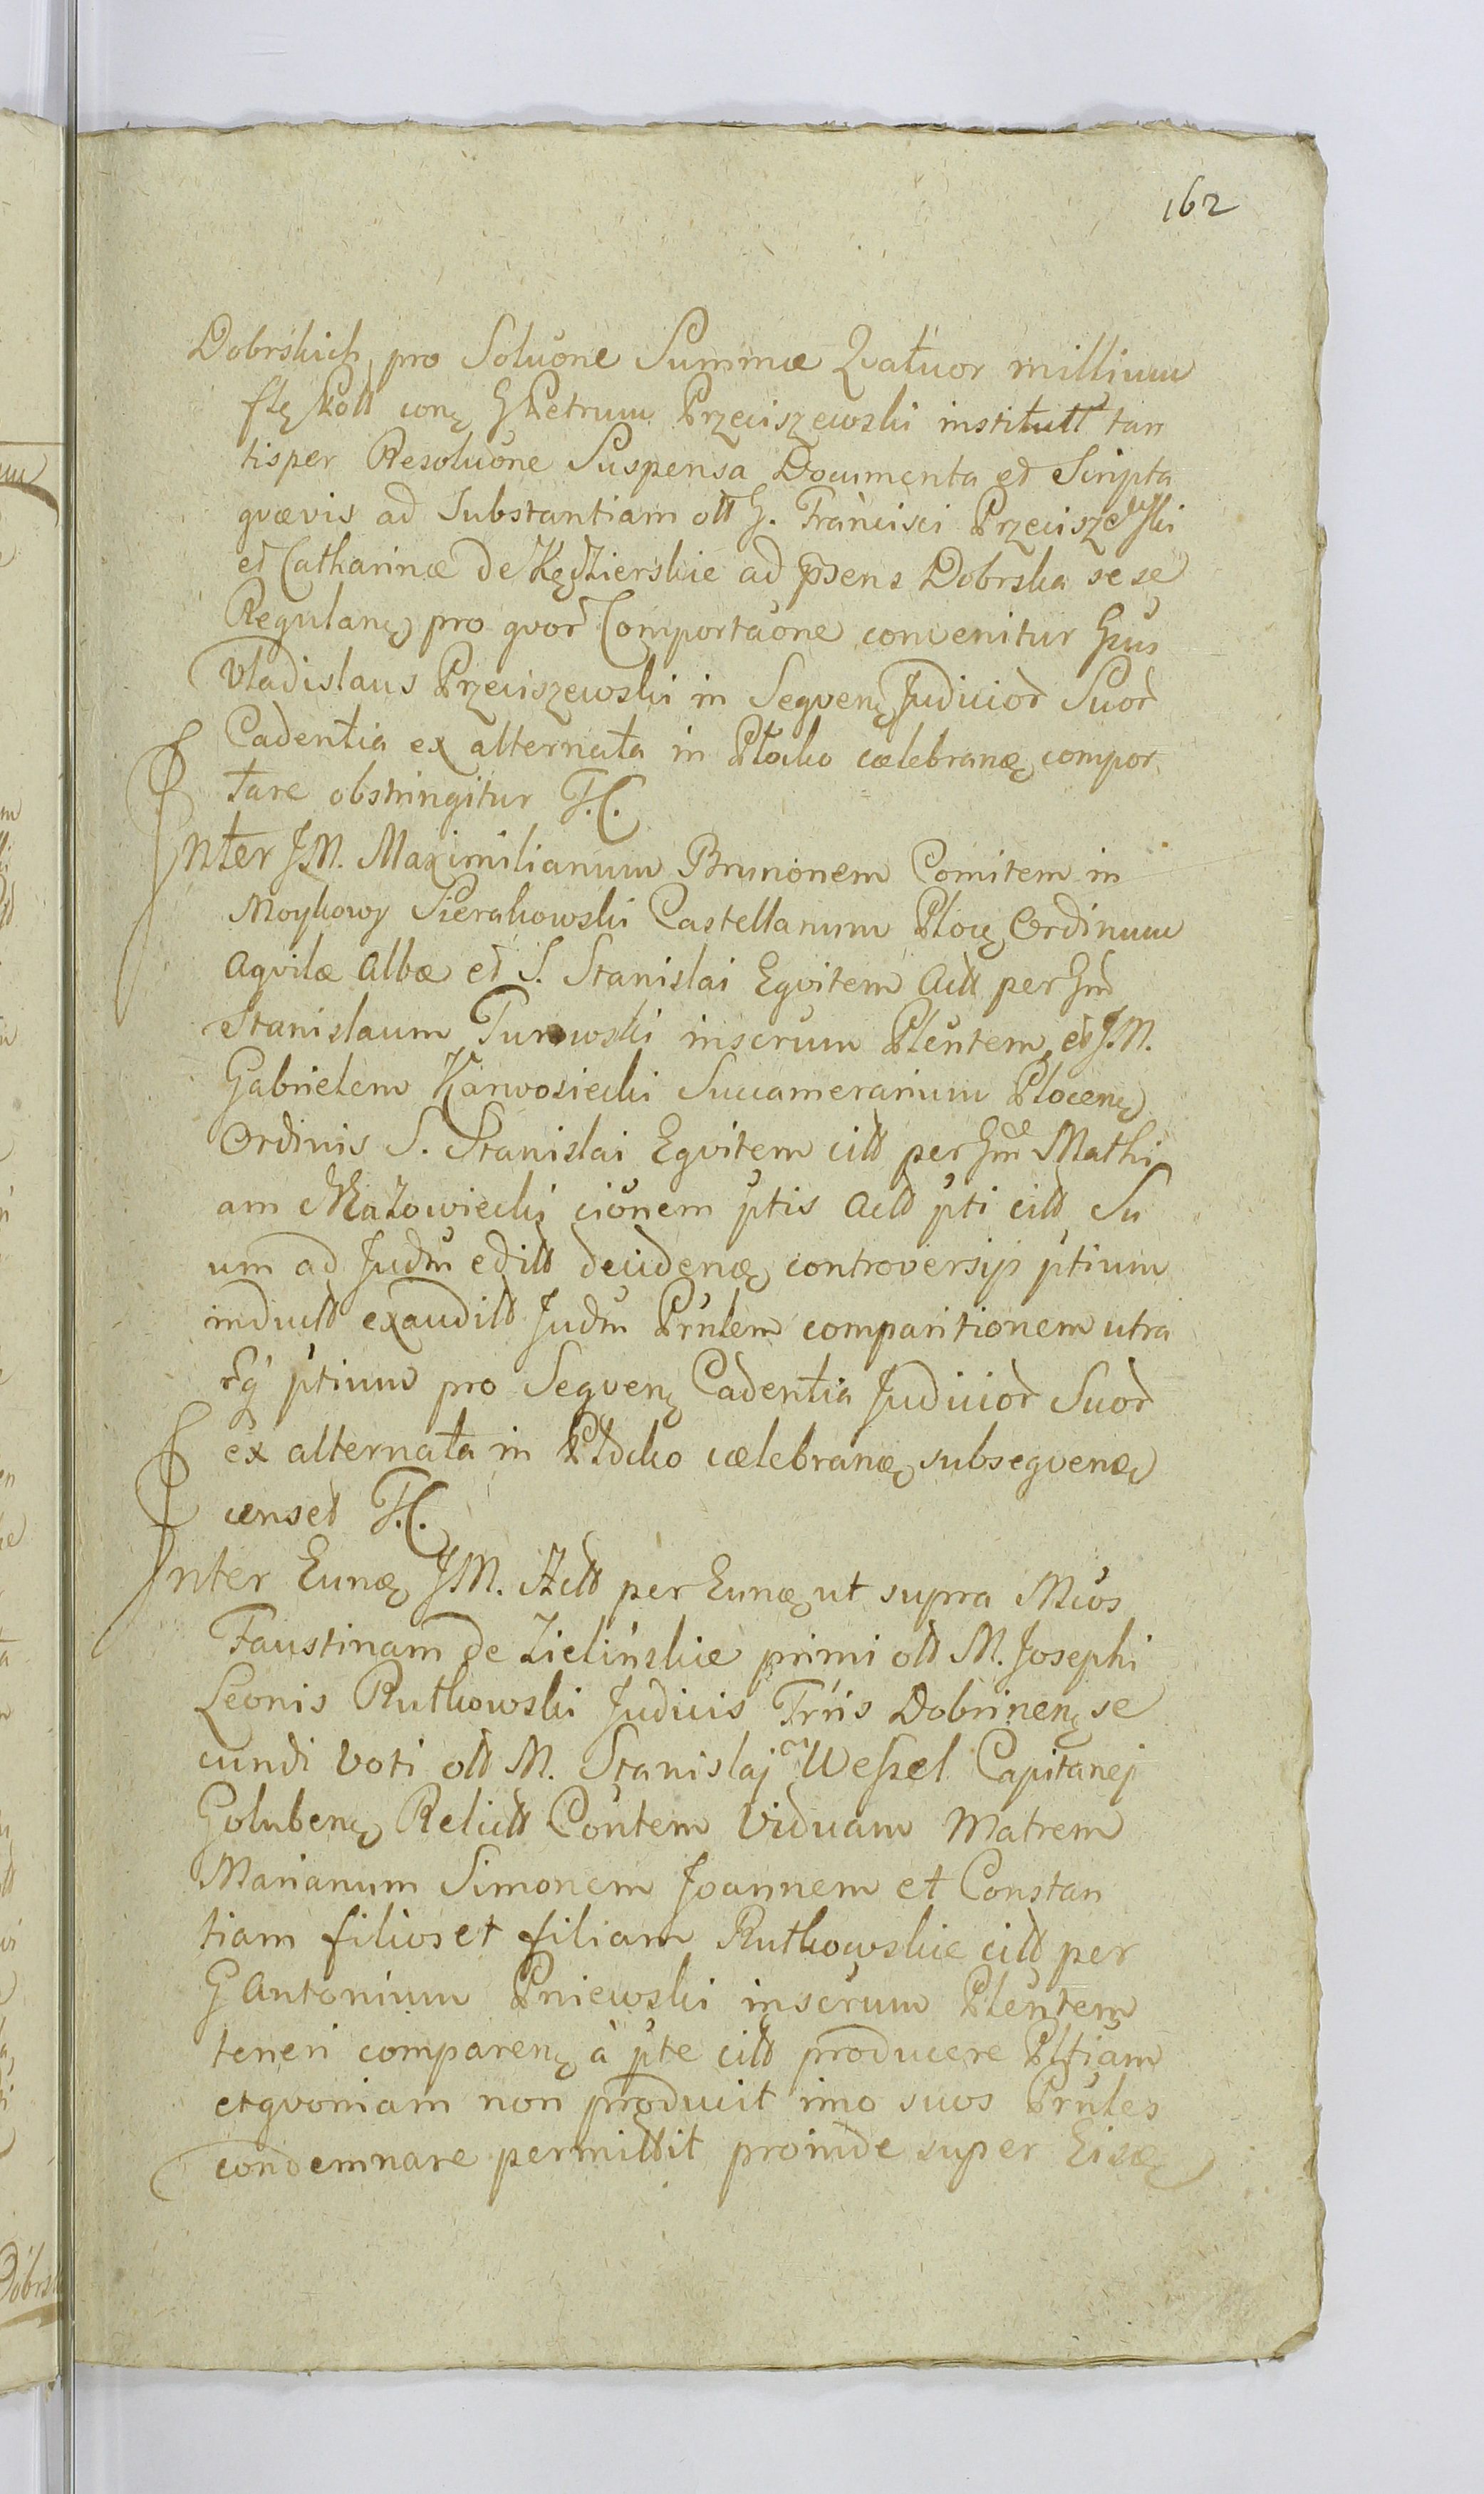 162
Dobrskich, pro Soluóne Summæ Qvatuor millium
flę Poll conę G Petrum Przeciszewski institutt tan
tisper Resoluóne Suspensa Documenta et Scripta
qvævis ad Substantiam oll G. Francisci Przeciszewski
et Catharinæ de Kędzierskie ad psens Dobrska se se
Regulanę pro qvor Comportaóne convenitur Gsus
Vladislaus Przeciszewski in Seqvenę Judicior Suor
Cadentia ex alternata in Płocko cælebranę compor
tare obstringitur T.C.
Inter J.M. Maximilianum Brunonem Comitem in
Moykowy Sierakowski Castellanum Płocę Ordinum
Aqvilæ Albæ et S. Stanislai Eqvitem Actt per Gm
Stanislaum Turowski inscrum Plentem, et J.M.
Gabrielem Karwosiecki Succamerarium Plocenę
Ordinis S. Stanislai Eqvitem citt per Gm Mathi
am Mazowiecki cionem ptis Actt pti citt Su
um ad Judm editt decidenę controversijs ptium
inductt exauditt Judm Prnlem comparitionem utra
rq ptium pro Seqvenę Cadentia Judicior Suor
ex alternata in Płocko cælebranę subseqvenę
censet T.C.
Inter Eunę J.M. Actt per Eunę ut supra Mcos
Faustinam de Zielińskie primi oll M. Josephi
Leonis Rutkowski Judicis Trris Dobrinenę se
cundi Voti oll M. Stanislaj Wessel Capitanej
Golubenę Relictt Cóntem Viduam Matrem
Marianum Simonem Joannem et Constan
tiam filios et filiam Rutkowskie citt per
G Antonium Pniewski inscrum Plentem
teneri comparenę à pte citt producere Pltiam
et qvoniam non producit imo suos Prnles
condemnare permittit proinde super Eisdę
Dobrsk